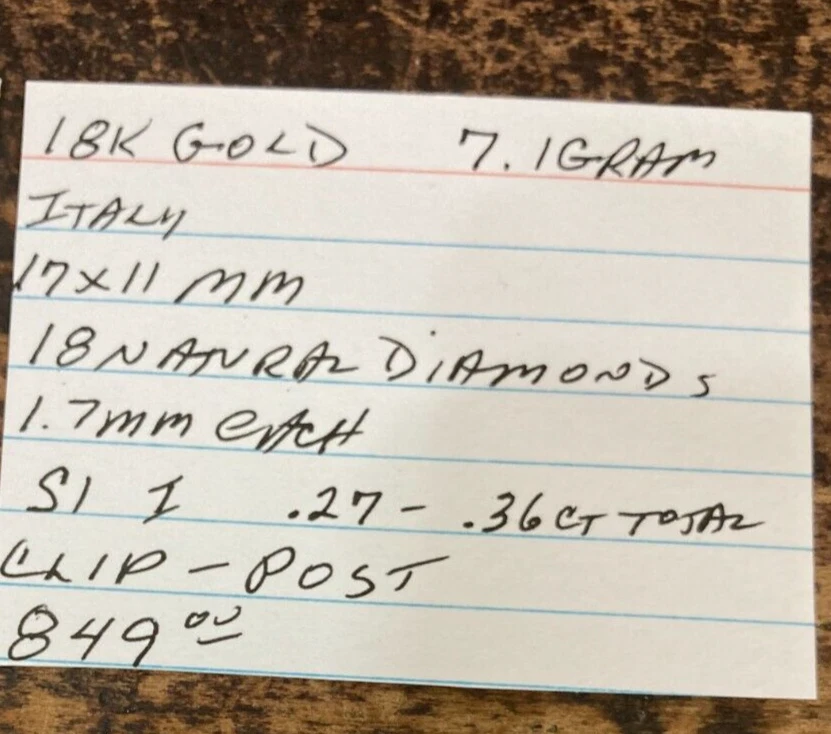 18K GOLD 7.1GRAM
ITALY
17x11 MM
18 NATURAL DIAMONDS
1.7mm eACH
SI I .27 - .36 CT TOTAL
CLIP - POST
849.00